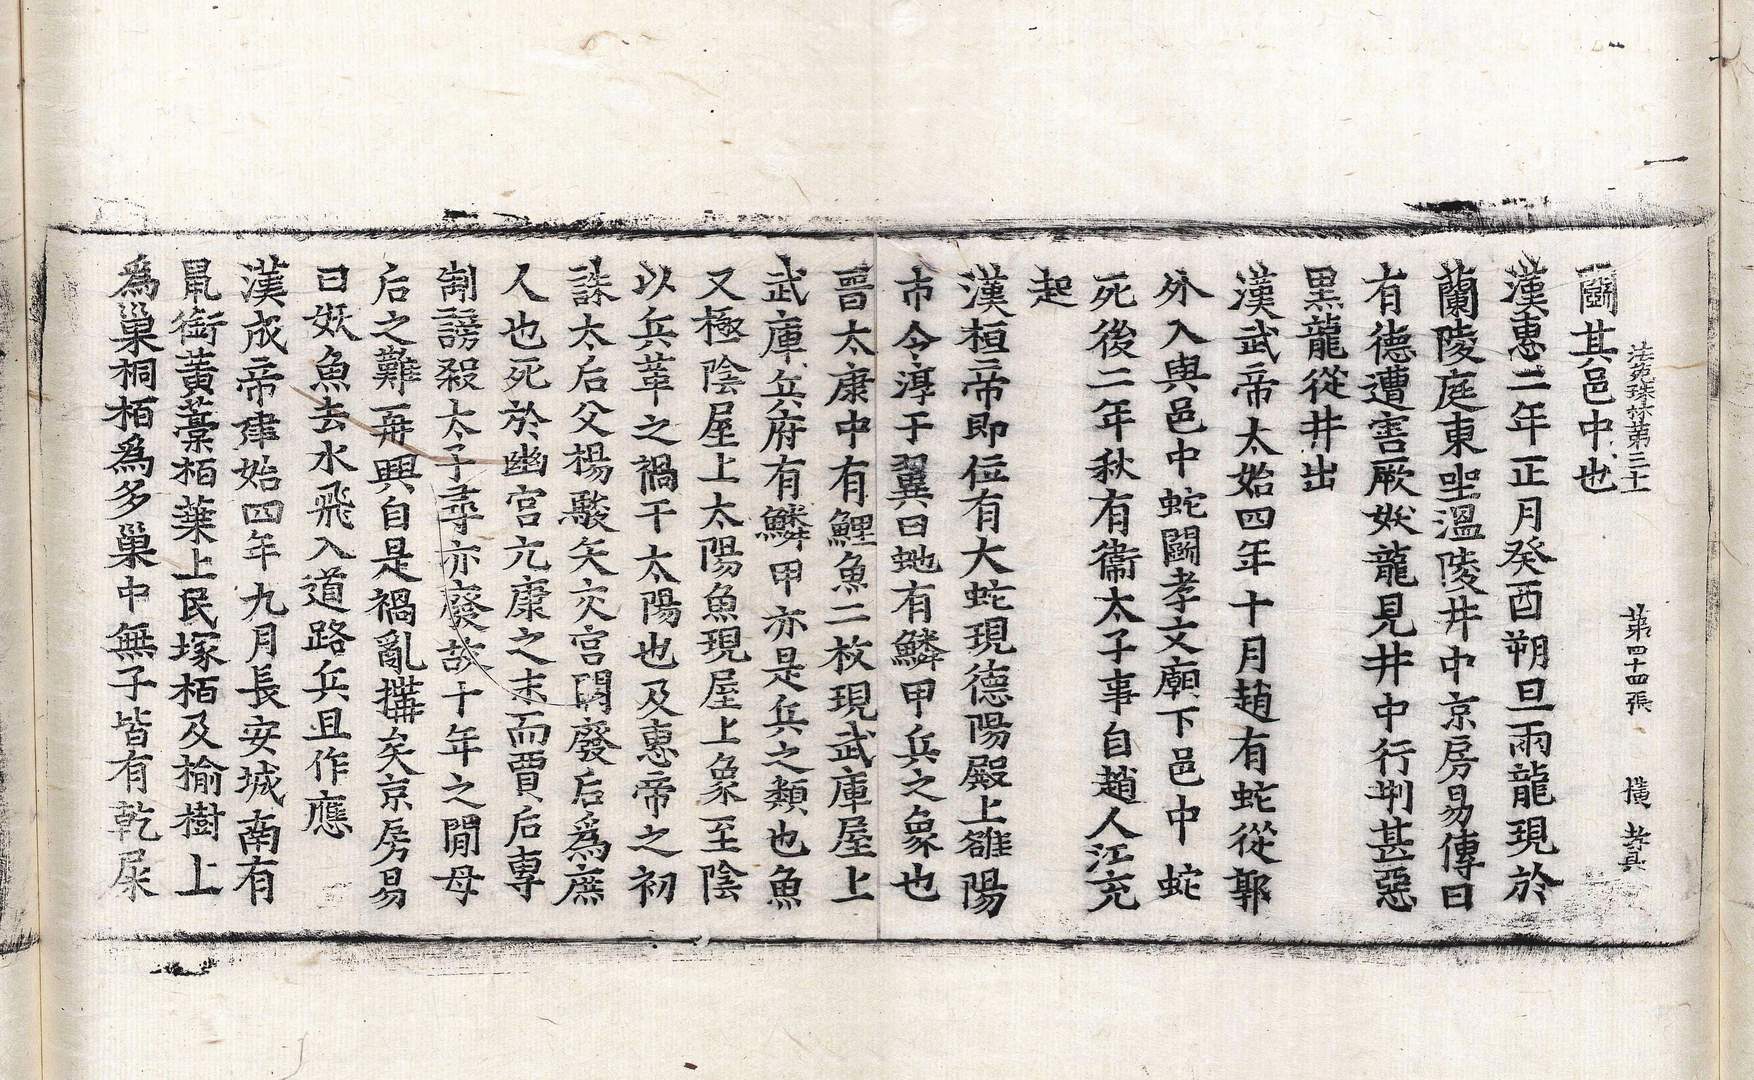 法苑珠林第三十一 第四十四張 橫 孝兵
鬪其邑中也
漢惠二年正月癸酉朔旦兩龍現於
蘭陵庭東里溫陵井中京房易傳曰
有德遭害厥妖龍見井中行刑甚惡
黑龍從井出
漢武帝太始四年十月趙有蛇從郭
外入與邑中蛇鬪孝文廟下邑中蛇
死後二年秋有衞太子事自趙人江充
起
漢桓帝即位有大蛇現德陽殿上雒陽
市令淳于翼曰虵有鱗甲兵之象也
晉太康中有鯉魚二枚現武庫屋上
武庫兵府有鱗甲亦是兵之類也魚
又極陰屋上太陽魚現屋上象至陰
以兵革之禍干太陽也及惠帝之初
誅太后父楊駿矢交宮闕廢后爲庶
人也死於幽宮元康之末而賈后專
制謗殺太子尋亦廢故十年之閒母
后之難再興自是禍亂搆矣京房易
曰妖魚去水飛入道路兵且作應
漢成帝建始四年九月長安城南有
鼠銜黃藁栢葉上民塚栢及榆樹上
爲巢桐栢爲多巢中無子皆有乾屎